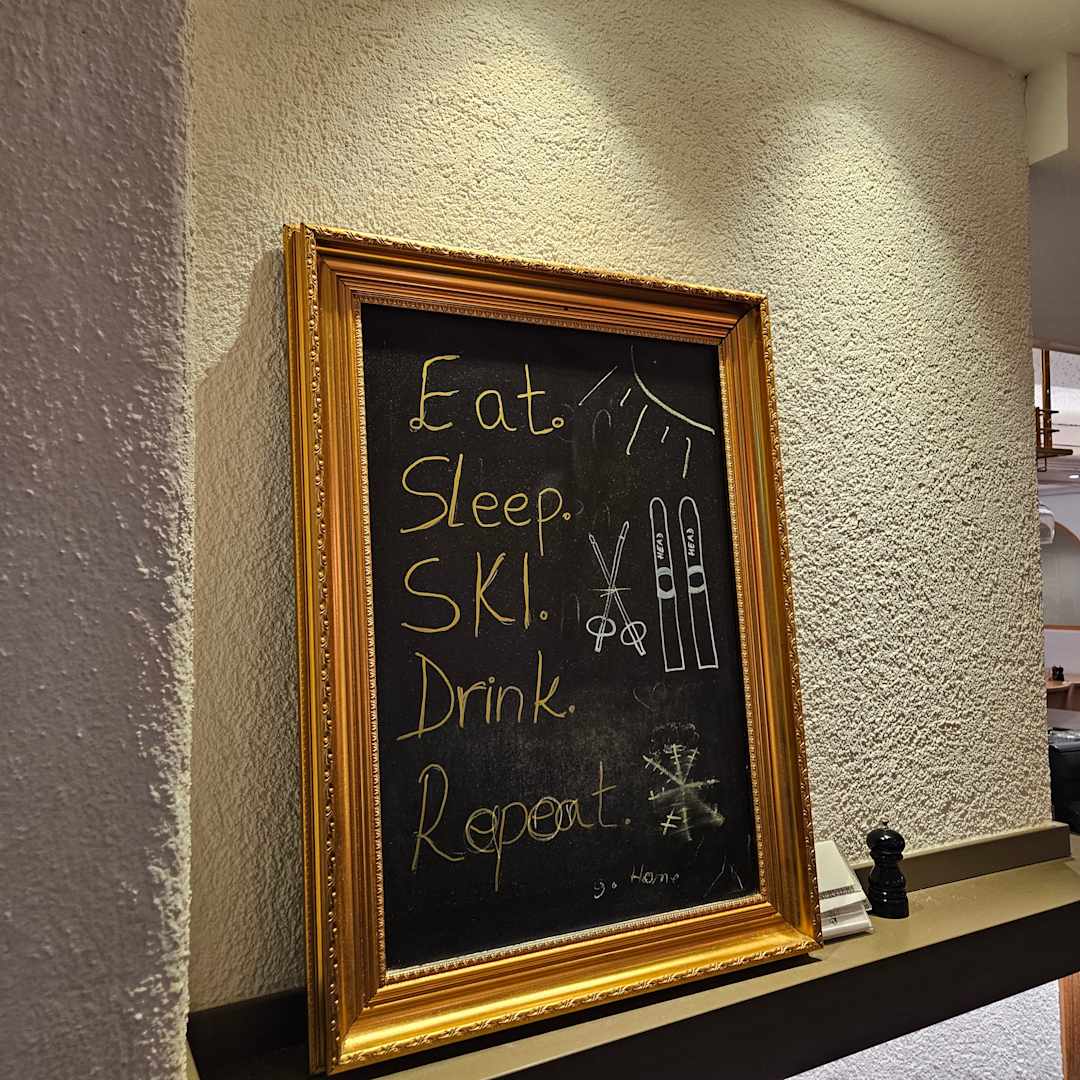 Eat.
Sleep.
SKI.
HEAD HEAD
Drink.
Repeat.
go Home